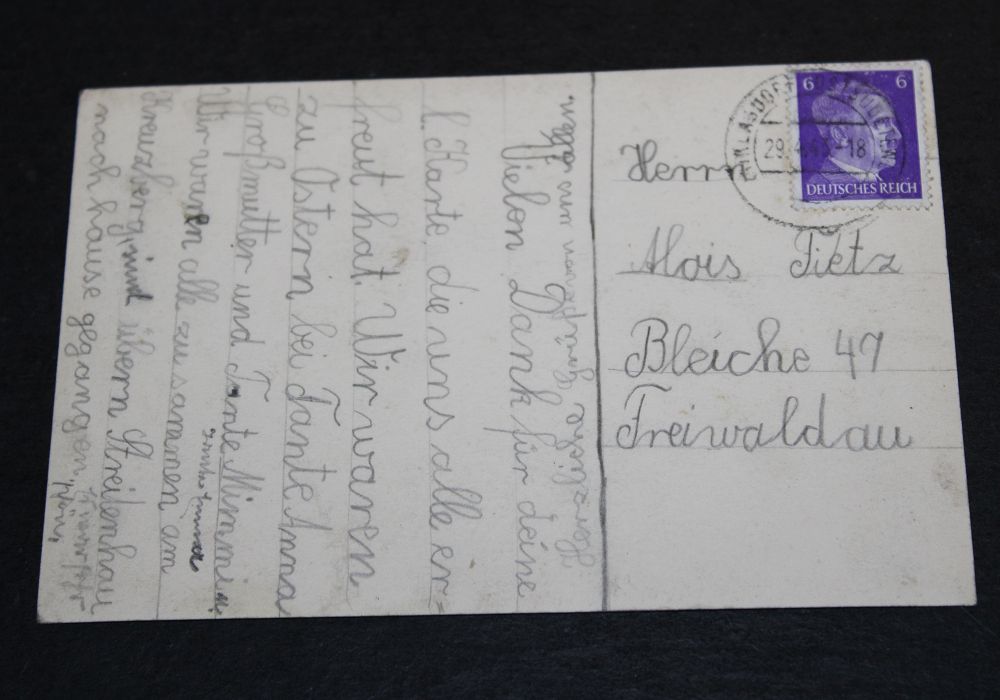 Vielen Dank für deine
l. Karte, die uns alle er-
freut hat. Wir waren
zu Ostern bei Tante Anna
Großmutter und Tante Mimmi
Wir waren alle zusammen am
Kreuzberg, und übern Streitenhau
nach hause gegangen.
Herzlichste Grüße von
Herrn
Alois Tietz
Bleiche 47
Freiwaldau
6 6
DEUTSCHES REICH
29. 4. 43 - 18